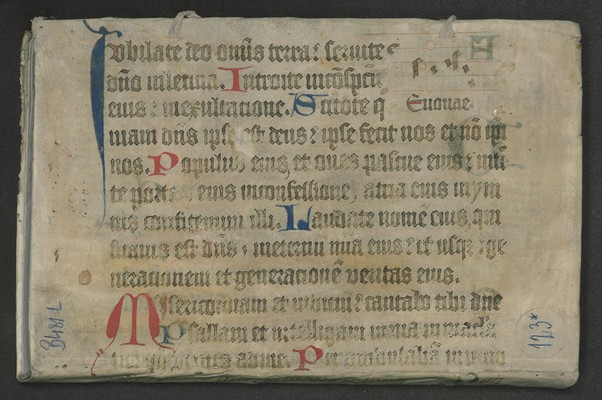 Jubilate deo om̅is terra: seruite
dn̅o in leticia. Introite in co̅spectu
eius: in exultatione. Scitote q̅
Euouae.
niam dn̅s ipse est deus: ipse fecit nos et no̅ ipi̅
nos. Populus eius et oues pascue eius: intr̅
te portas eius in confessione, atria eius in ym
nis confitemini illi. Laudate nome̅ eius, qm̅
suauis est dn̅s: in eternu̅ mi̅a eius: et usq̅ i̅ ge
nerationem et generatione̅ veritas eius.
Misericordiam et iudiciu̅: cantabo tibi dn̅e
Psallam et intelligam in uia in macula
Perambulaba̅ in
B481 L
123*